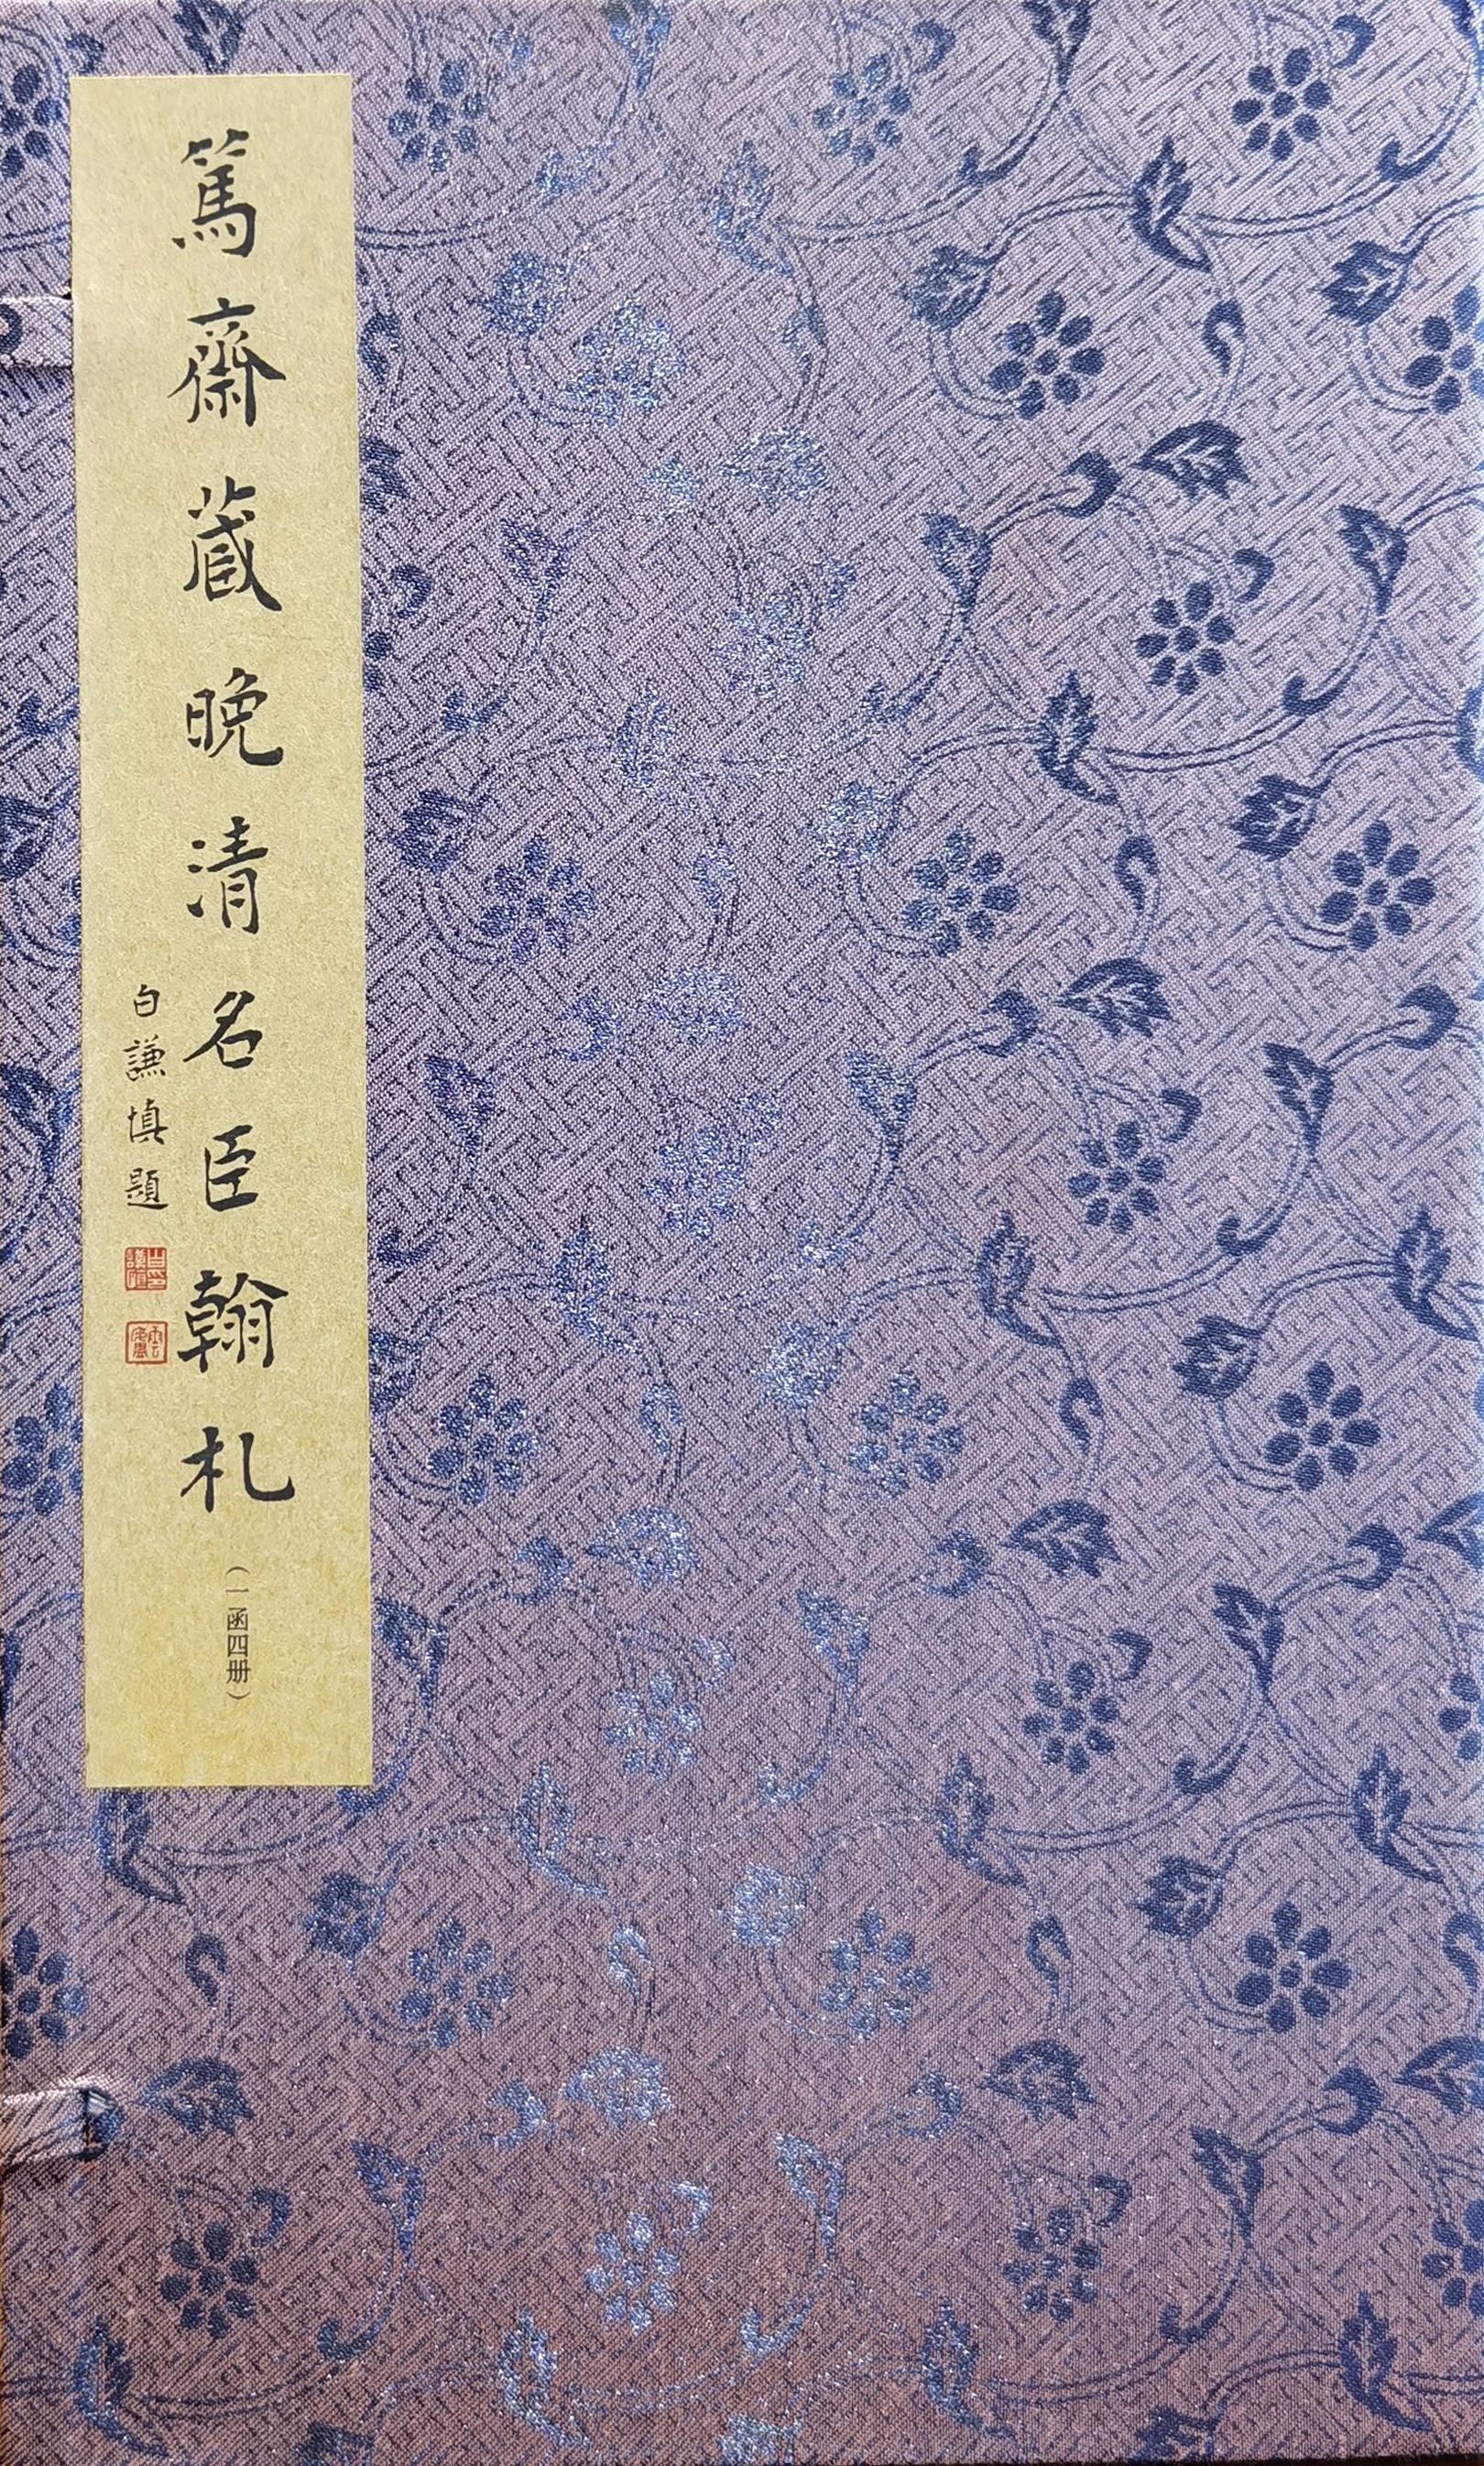 篤齋藏晚清名臣翰札
(一函四册)
白謙慎題